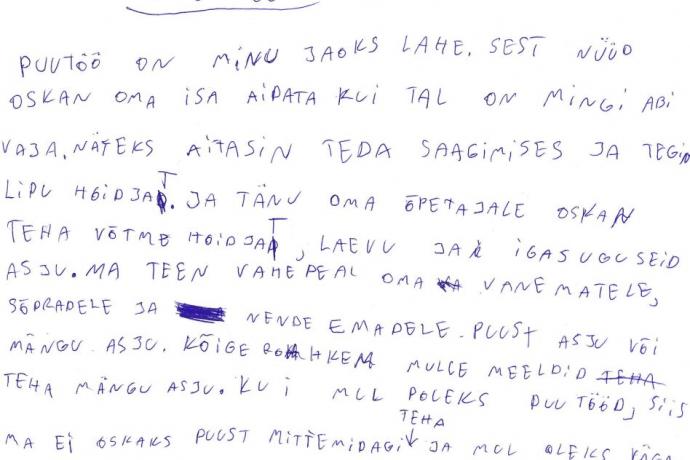 PUUTÖÖ ON MINU JAOKS LAHE. SEST NÜÜD
OSKAN OMA ISA AIDATA KUI TAL ON MINGI ABI
VAJA. NÄTEKS AITASIN TEDA SAAGIMISES JA TEGID
LIPU HOIDJAT. JA TÄNU OMA ÕPETAJALE OSKAN
TEHA VÕTME HOIDJAT, LAEVU JA IGASUGUSEID
ASJU. MA TEEN VAHEPEAL OMA VANEMATELE,
SÕPRADELE JA NENDE EMADELE. PUUST ASJU VÕI
MÄNGU ASJU. KÕIGE ROHKEM MULLE MEELDID TEHA
TEHA MÄNGU ASJU. KUI MUL POLEKS PUUTÖÖD, SIIS
TEHA
MA EI OSKAKS PUUST MITTEMIDAGI JA MUL OLEKS